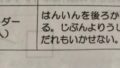 ダー
はんいんを後ろか
る。じぶんよりうし
だれもいかせない。